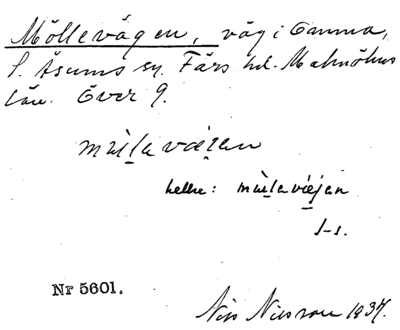 Möllevägen, väg i Gamma,
S. Åsums sn. Färs hd. Malmöhus
län. Över 9.
mùla væjan
helle: mùla væjan
S-s.
Nr 5601.
Nils Nilsson 1937.